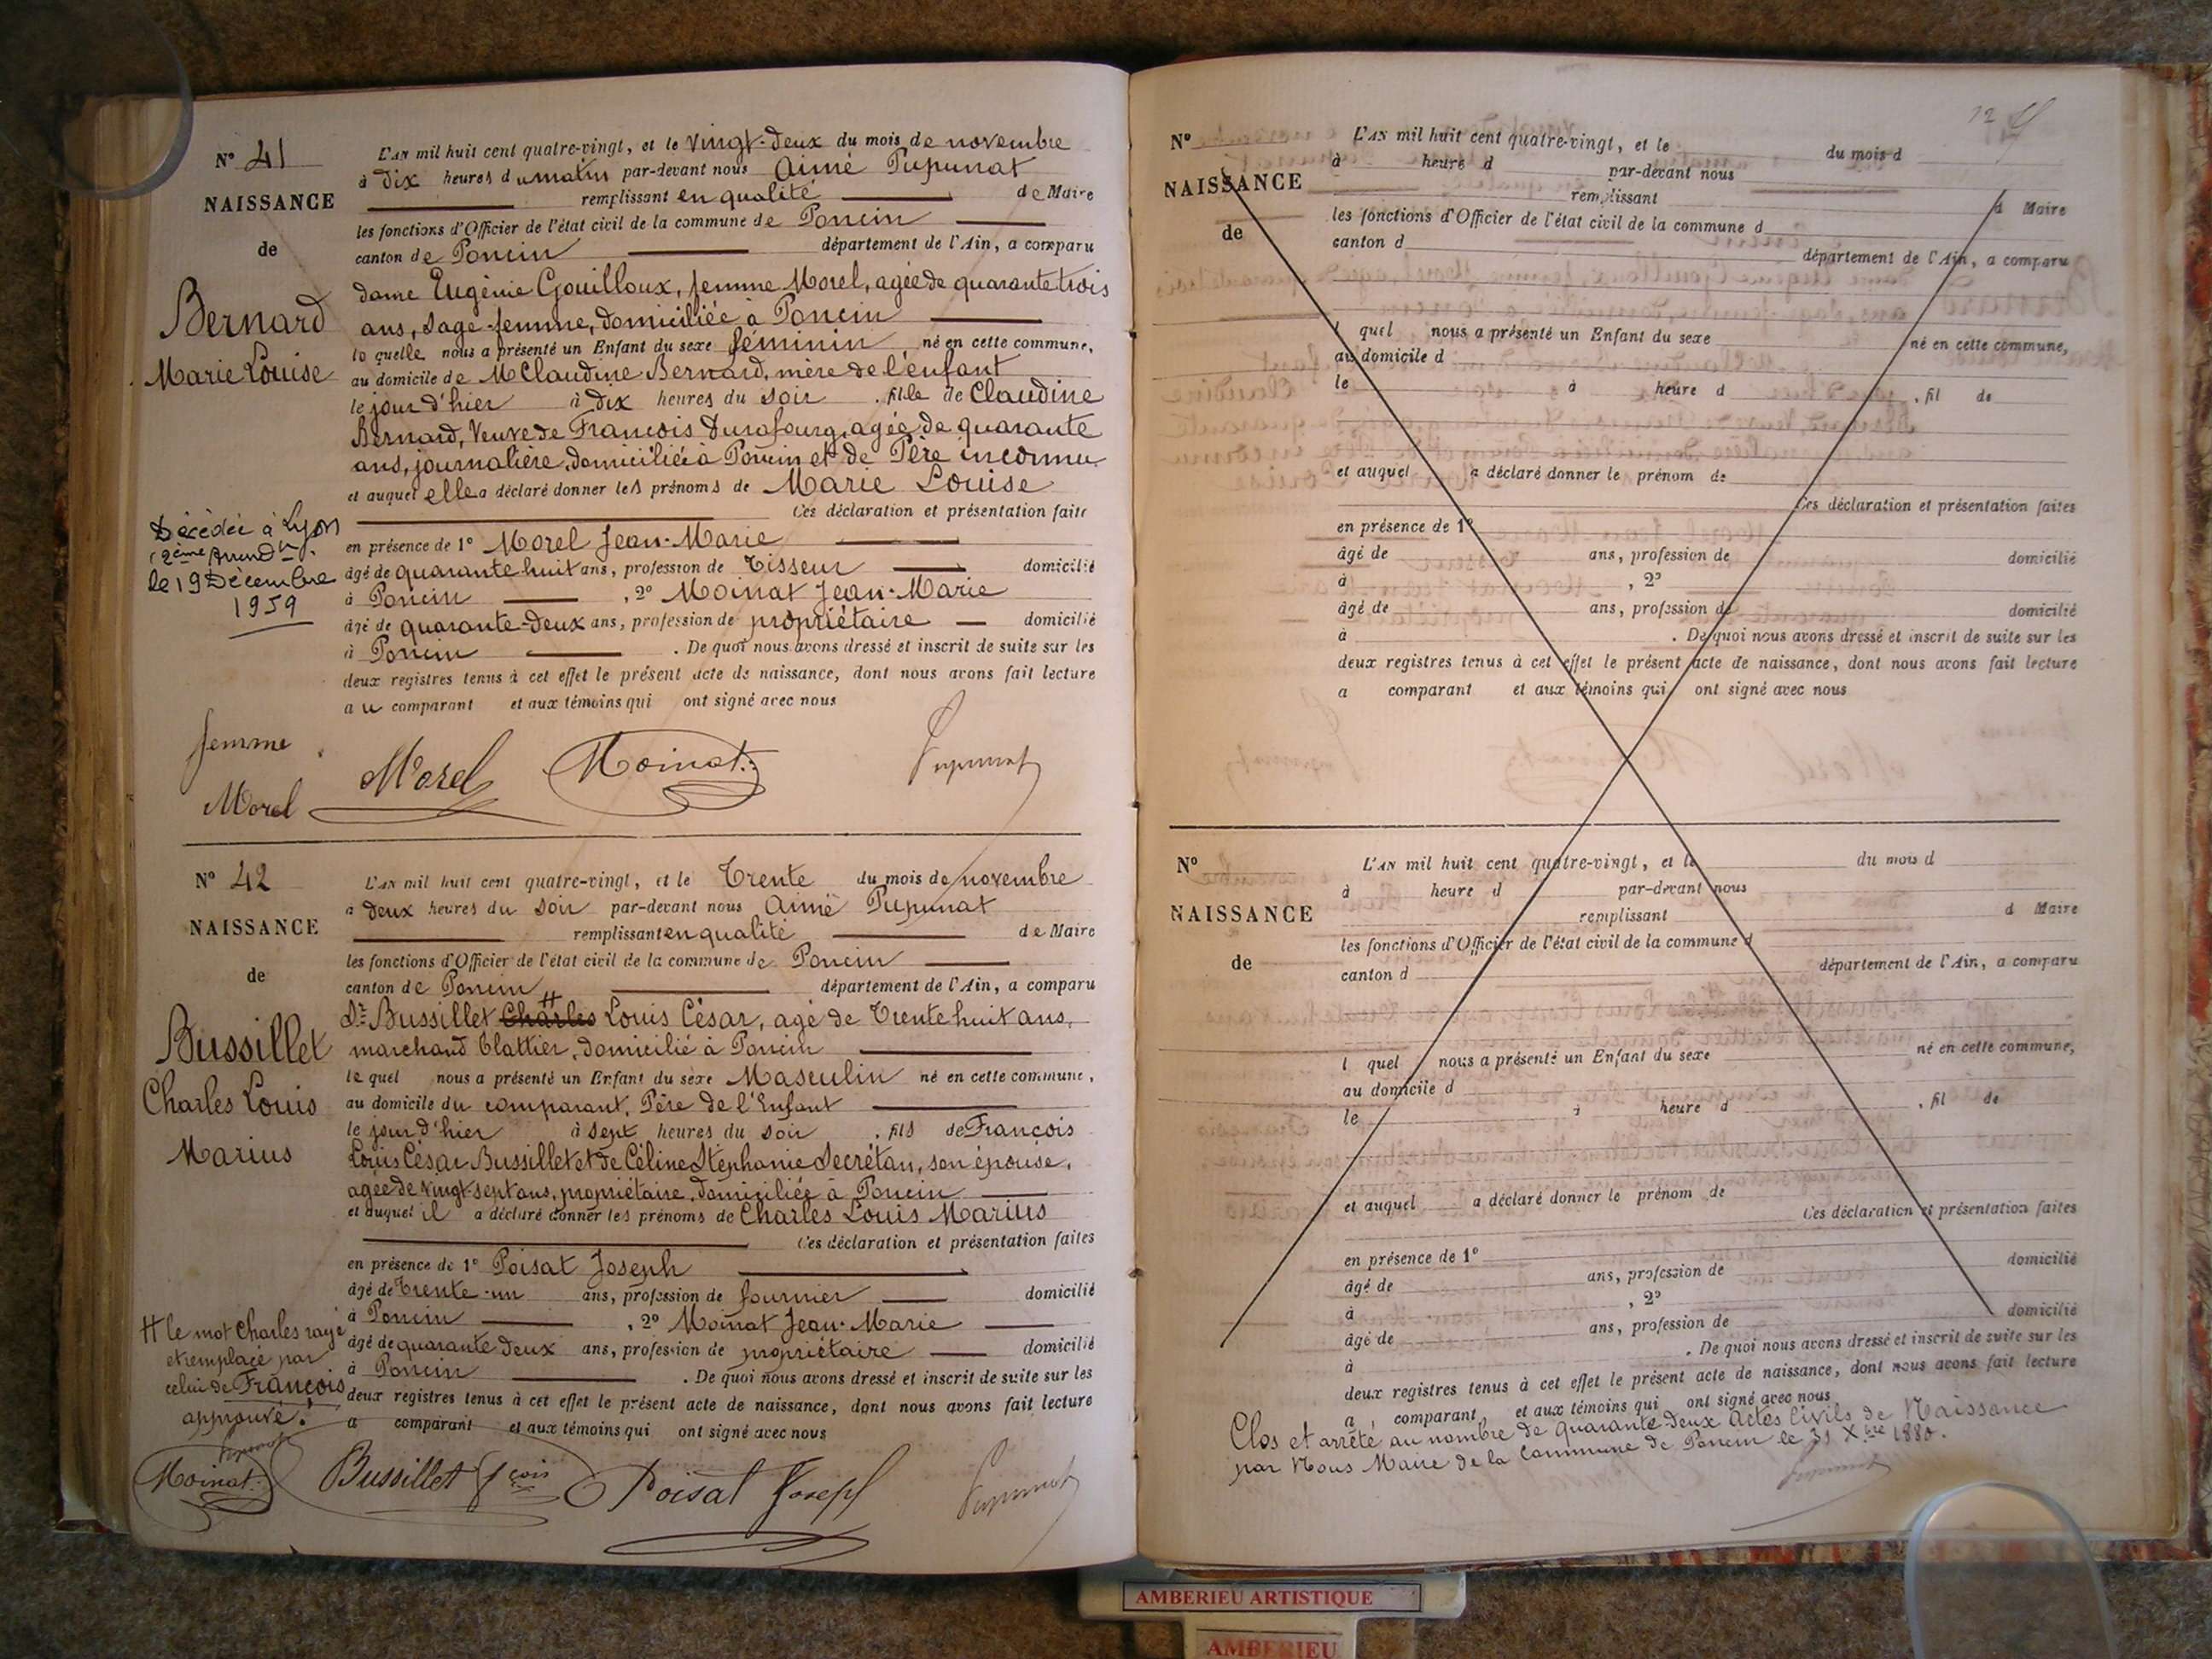 N° 41
NAISSANCE
de
Bernard
Marie Louise
L'AN mil huit cent quatre-vingt, et le vingt-deux du mois de novembre
à dix heures du matin par-devant nous Aimé Pupunat
remplissant en qualité de Maire
les fonctions d'Officier de l'état civil de la commune de Poncin
canton de Poncin département de l'Ain, a comparu
dame Eugénie Gouilloux, femme Morel, agée de quarante trois
ans, sage-femme, domiciliée à Poncin
la quelle nous a présenté un Enfant du sexe féminin né en cette commune,
au domicile de M Claudine Bernard, mère de l'enfant
le jour d'hier à dix heures du soir, fille de Claudine
Bernard, Veuve de François Durafourg, agée de quarante
ans, journalière, domiciliée à Poncin et de Père inconnu
et auquel elle a déclaré donner les prénoms de Marie Louise
Ces déclaration et présentation faite
en présence de 1° Morel Jean-Marie
âgé de quarante huit ans, profession de Tisseur domicilié
à Poncin, 2° Moinat Jean-Marie
âgé de quarante-deux ans, profession de propriétaire domicilié
à Poncin. De quoi nous avons dressé et inscrit de suite sur les
deux registres tenus à cet effet le présent acte de naissance, dont nous avons fait lecture
au comparant et aux témoins qui ont signé avec nous
Décédée à Lyon
(2ème Arrondt).
le 19 Décembre
1959
femme
Morel
Morel Moinat Pupunat
N° 42
NAISSANCE
de
Bussillet
Charles Louis
Marius
L'AN mil huit cent quatre-vingt, et le Trente du mois de novembre
à deux heures du soir par-devant nous Aimé Pupunat
remplissant en qualité de Maire
les fonctions d'Officier de l'état civil de la commune de Poncin
canton de Poncin département de l'Ain, a comparu
Sr Bussillet Charles Louis César, agé de Trente huit ans,
marchand blattier, domicilié à Poncin
le quel nous a présenté un Enfant du sexe Masculin né en cette commune,
au domicile du comparant, Père de l'Enfant
le jour d'hier à sept heures du soir, fils de François
Louis César Bussillet et de Céline Stéphanie Secrétan, son épouse,
agée de vingt-sept ans, propriétaire, domiciliée à Poncin
et auquel il a déclaré donner les prénoms de Charles Louis Marius
Ces déclaration et présentation faites
en présence de 1° Poisat Joseph
âgé de Trente-un ans, profession de fournier domicilié
à Poncin, 2° Moinat Jean-Marie
âgé de quarante deux ans, profession de propriétaire domicilié
à Poncin. De quoi nous avons dressé et inscrit de suite sur les
deux registres tenus à cet effet le présent acte de naissance, dont nous avons fait lecture
a comparant et aux témoins qui ont signé avec nous
# le mot Charles rayé
et remplacé par
celui de François
approuvé.
Pupunat
Moinat Bussillet fçois Poisat Joseph Pupunat
12
N°
NAISSANCE
de
L'AN mil huit cent quatre-vingt, et le du mois d
à heure d par-devant nous
remplissant d Maire
les fonctions d'Officier de l'état civil de la commune d
canton d département de l'Ain, a comparu
l quel nous a présenté un Enfant du sexe né en cette commune,
au domicile d
le à heure d, fil de
et auquel a déclaré donner le prénom de
Ces déclaration et présentation faites
en présence de 1°
âgé de ans, profession de domicilié
à, 2°
âgé de ans, profession de domicilié
à. De quoi nous avons dressé et inscrit de suite sur les
deux registres tenus à cet effet le présent acte de naissance, dont nous avons fait lecture
a comparant et aux témoins qui ont signé avec nous
N°
NAISSANCE
de
L'AN mil huit cent quatre-vingt, et le du mois d
à heure d par-devant nous
remplissant d Maire
les fonctions d'Officier de l'état civil de la commune d
canton d département de l'Ain, a comparu
l quel nous a présenté un Enfant du sexe né en cette commune,
au domicile d
le à heure d, fil de
et auquel a déclaré donner le prénom de
Ces déclaration et présentation faites
en présence de 1° domicilié
âgé de ans, profession de
à, 2° domicilié
âgé de ans, profession de
à. De quoi nous avons dressé et inscrit de suite sur les
deux registres tenus à cet effet le présent acte de naissance, dont nous avons fait lecture
a comparant et aux témoins qui ont signé avec nous
Clos et arrêté au nombre de quarante deux actes civils de Naissance
par Nous Maire de la Commune de Poncin le 31 Xbre 1880.
Pupunat
AMBERIEU ARTISTIQUE
AMBERIEU